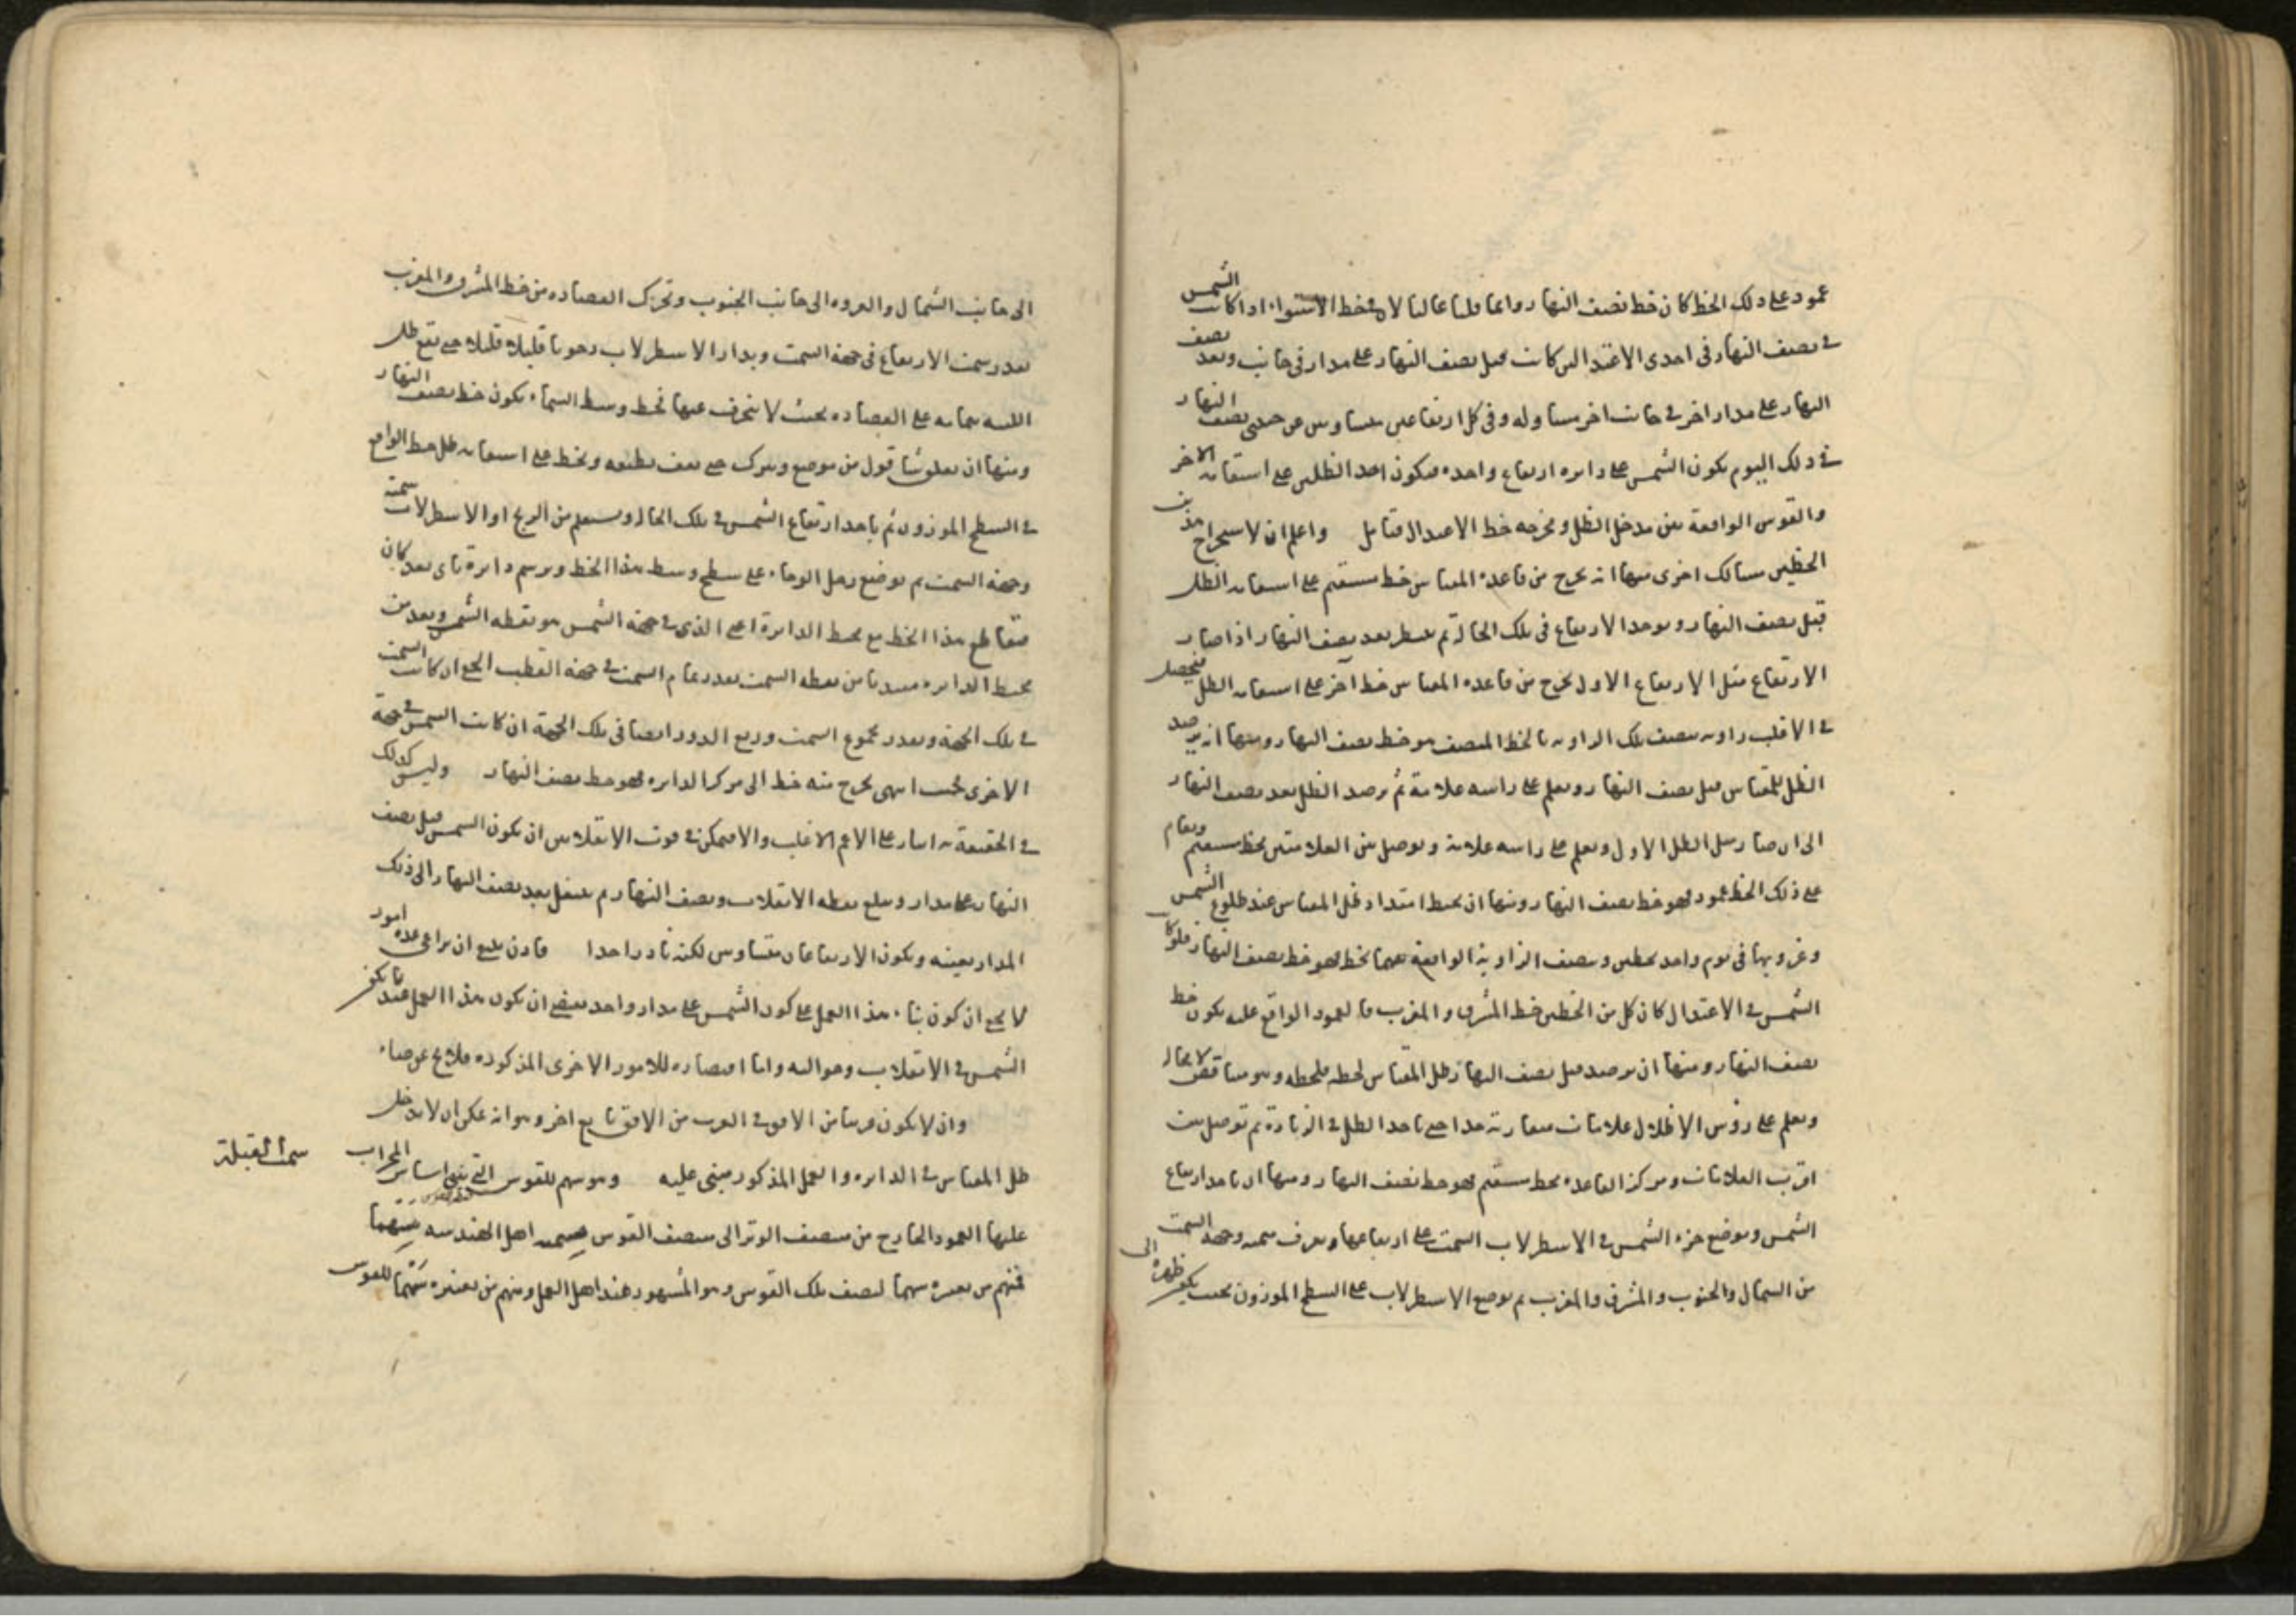 عمود على ذلك الخط كان خط نصف النهار وانما قلنا غالبا لان في خط الاستواء اذا كانت الشمس
في نصف النهار في احدى الاعتدالين كانت قبل نصف النهار على مدار في جانب وبعد نصف
النهار على مدار اخر في جانب اخر مساو له وفي كل ارتفاعين متساويين عن جنبتي نصف النهار
في ذلك اليوم يكون الشمس على دايرة ارتفاع واحدة فيكون احد الظلين على استقامة الاخر
والقوس الواقعة بين مدخل الظل ومخرجه خط الاعتدال فتامل واعلم ان لاستخراج هذين
الخطين مسالك اخرى منها انه يخرج من قاعدة المقياس خط مستقيم على استقامة الظل
قبل نصف النهار ويوخذ الارتفاع في تلك الحالة ثم ينتظر بعد نصف النهار اذا صار
الارتفاع مثل الارتفاع الاول يخرج من قاعدة المقياس خط آخر على استقامة الظل فيحصل
في الاغلب زاوية ينصف تلك الزاوية فالخط المنصف هو خط نصف النهار ومنها انه يرصد
الظل للمقياس قبل نصف النهار ويعلم على راسه علامة ثم يرصد الظل بعد نصف النهار
الى ان صار مثل الظل الاول ويعلم على راسه علامة ويوصل بين العلامتين بخط مستقيم ويقام
على ذلك الخط عمود فهو خط نصف النهار ومنها ان يخط امتداد ظل المقياس عند طلوع الشمس
وغروبها في يوم واحد بخطين وينصف الزاوية الواقعة بينهما بخط فهو خط نصف النهار فلو كان
الشمس في الاعتدال كان كل من الخطين خط المشرق والمغرب فالعمود الواقع عليه يكون خط
نصف النهار ومنها ان يرصد قبل نصف النهار ظل المقياس لحظة فلحظة وهو متناقص لا محالة
ويعلم على رؤس الاظلال علامات متقاربة جدا حتى ياخذ الظل في الزيادة ثم توصل بين
اقرب العلامات ومركز القاعدة بخط مستقيم فهو خط نصف النهار ومنها ان ياخذ ارتفاع
الشمس ويوضع جزء الشمس في الاسطرلاب السمتي على ارتفاعها ويعرف سمته وجهة السمت
من الشمال والجنوب والمشرق والمغرب ثم يوضع الاسطرلاب على السطح الموزون بحيث يكون ظهره الى
الى جانب الشمال والعروة الى جانب الجنوب وتحرك العضادة من خط المشرق والمغرب
بقدر سمت الارتفاع في جهة السمت ويدار الاسطرلاب رحويا قليلا قليلا حتى يقع ظل
اللبنة بتمامه على العضادة بحيث لا ينحرف عنها فخط وسط السماء يكون خط نصف النهار
ومنها ان يعلق شاقول من موضع ويترك حتى يقف بطبعه ويخط على استقامة ظل خط الواقع
في السطح الموزون ثم ياخذ ارتفاع الشمس في تلك الحالة ويستعلم من الزيج او الاسطرلاب سمته
وجهة السمت ثم يوضع رجل الوجاء على سطح وسط هذا الخط ويرسم دايرة باي بعد كان
فتقاطع هذا الخط مع محيط الدايرة اعني الذي في جهة الشمس هو نقطة الشمس وبعد من
محيط الدايرة مبتديا من نقطة السمت بقدر تمام السمت في جهة القطب الجلي ان كانت السمت
في تلك الجهة وبقدر مجموع السمت وربع الدور ايضا في تلك الجهة ان كانت الشمس في جهة
الاخرى فحيث انتهى يخرج منه خط الى مركز الدايرة فهو خط نصف النهار وليس كذلك
في الحقيقة اشار على الاعم الاغلب والا فممكن في قرب الانقلابين ان يكون الشمس قبل نصف
النهار على مدار وبلغ نقطة الانقلاب ونصف النهار ثم ينتقل بعد نصف النهار الى ذلك
المدار بعينه ويكون الارتفاعان متساويين لكنه نادر جدا فاذن ينبغي ان يراعى عدة امور
لا يخفى ان كون بناء هذا العمل على كون الشمس على مدار واحد يقتضي ان يكون هذا العمل عند ما يكون
الشمس في الانقلاب وحواليه واما اقتضاؤه للامور الاخرى المذكورة فلا يخ عن خفاء
وان لا يكون قريبا من الافق في القرب من الافق مانع اخر وهو انه يمكن ان لا يدخل
ظل المقياس في الدايرة والعمل المذكور مبني عليه وهو سهم للقوس التي يبنى اساس المحراب
سمت القبلة
عليها العمود الخارج من منتصف الوتر الى منتصف القوس يسميه اهل الهندسة سهما
فمنهم من يعتبره سهما لنصف تلك القوس وهو المشهور عند اهل العمل ومنهم من يعتبره سهما للقوس